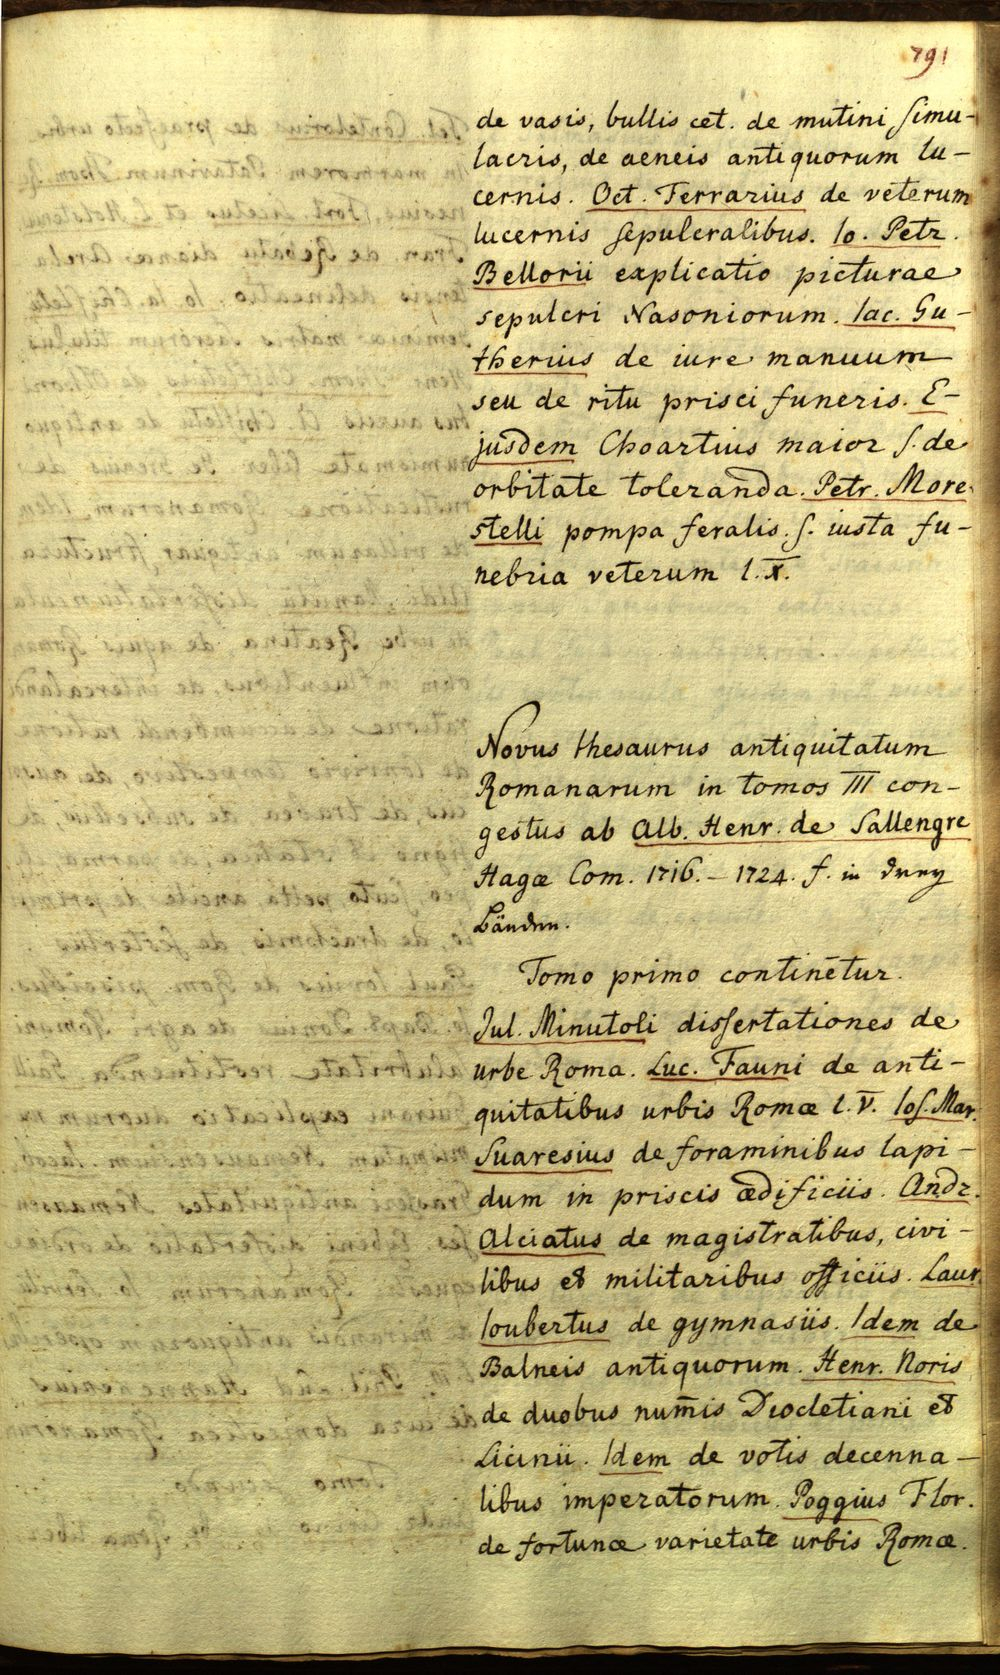 791
de vasis, bullis cet. de mutini simu-
lacris, de aeneis antiquorum lu-
cernis. Oct. Ferrarius de veterum
lucernis sepulcralibus. Io. Petr.
Bellorii explicatio picturae
sepulcri Nasoniorum. Iac. Gu-
therius de iure manuum
seu de ritu prisci funeris. E-
jusdem Choartius maior s. de
orbitate toleranda. Petr. More-
stelli pompa feralis. s. iusta fu-
nebria veterum l. X.
Novus thesaurus antiquitatum
Romanarum in tomos III con-
gestus ab Alb. Henr. de Sallengre
Hagæ Com. 1716. – 1724. f. in drey
Bänden.
Tomo primo continētur.
Jul. Minutoli dissertationes de
urbe Roma. Luc. Fauni de anti-
quitatibus urbis Romæ l. V. Ios. Mar.
Suaresius de foraminibus lapi-
dum in priscis ædificiis. Andr.
Alciatus de magistratibus, civi-
libus et militaribus officiis. Laur.
Ioubertus de gymnasiis. Idem de
Balneis antiquorum. Henr. Noris
de duobus num̄is Diocletiani et
Licinii. Idem de votis decenna-
libus imperatorum. Poggius Flor.
de fortunæ varietate urbis Romæ.